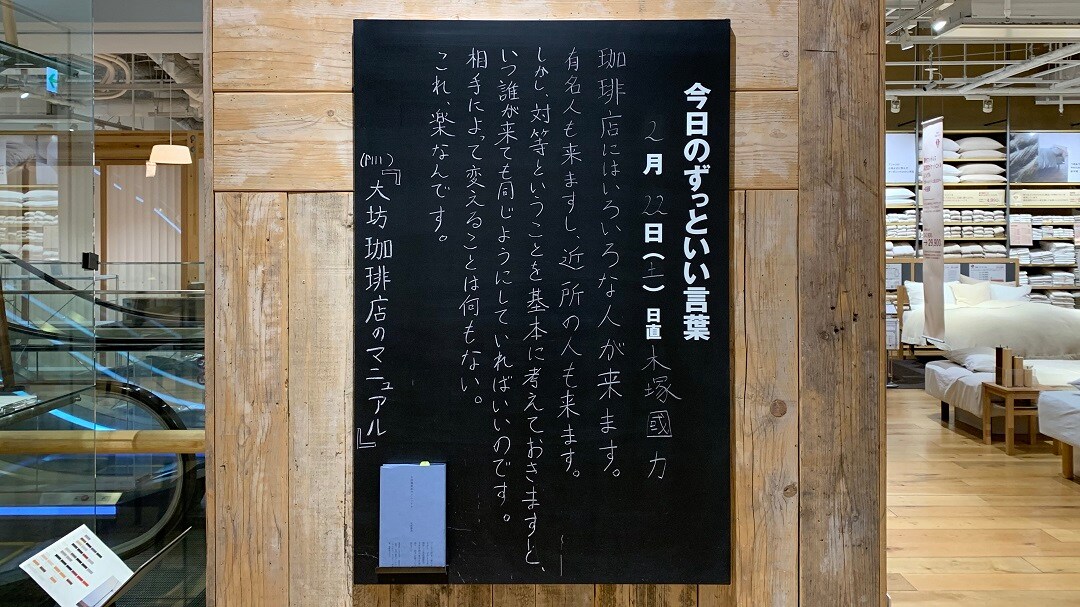 今日のずっといい言葉
2月22日(土) 日直 木塚國力
珈琲店にはいろいろな人が来ます。
有名人も来ますし、近所の人も来ます。
しかし、対等ということを基本に考えておきますと、
いつ誰が来ても同じようにしていればいいのです。
相手によって変えることは何もない。
これ、楽なんです。
『大坊珈琲店のマニュアル』
29,900